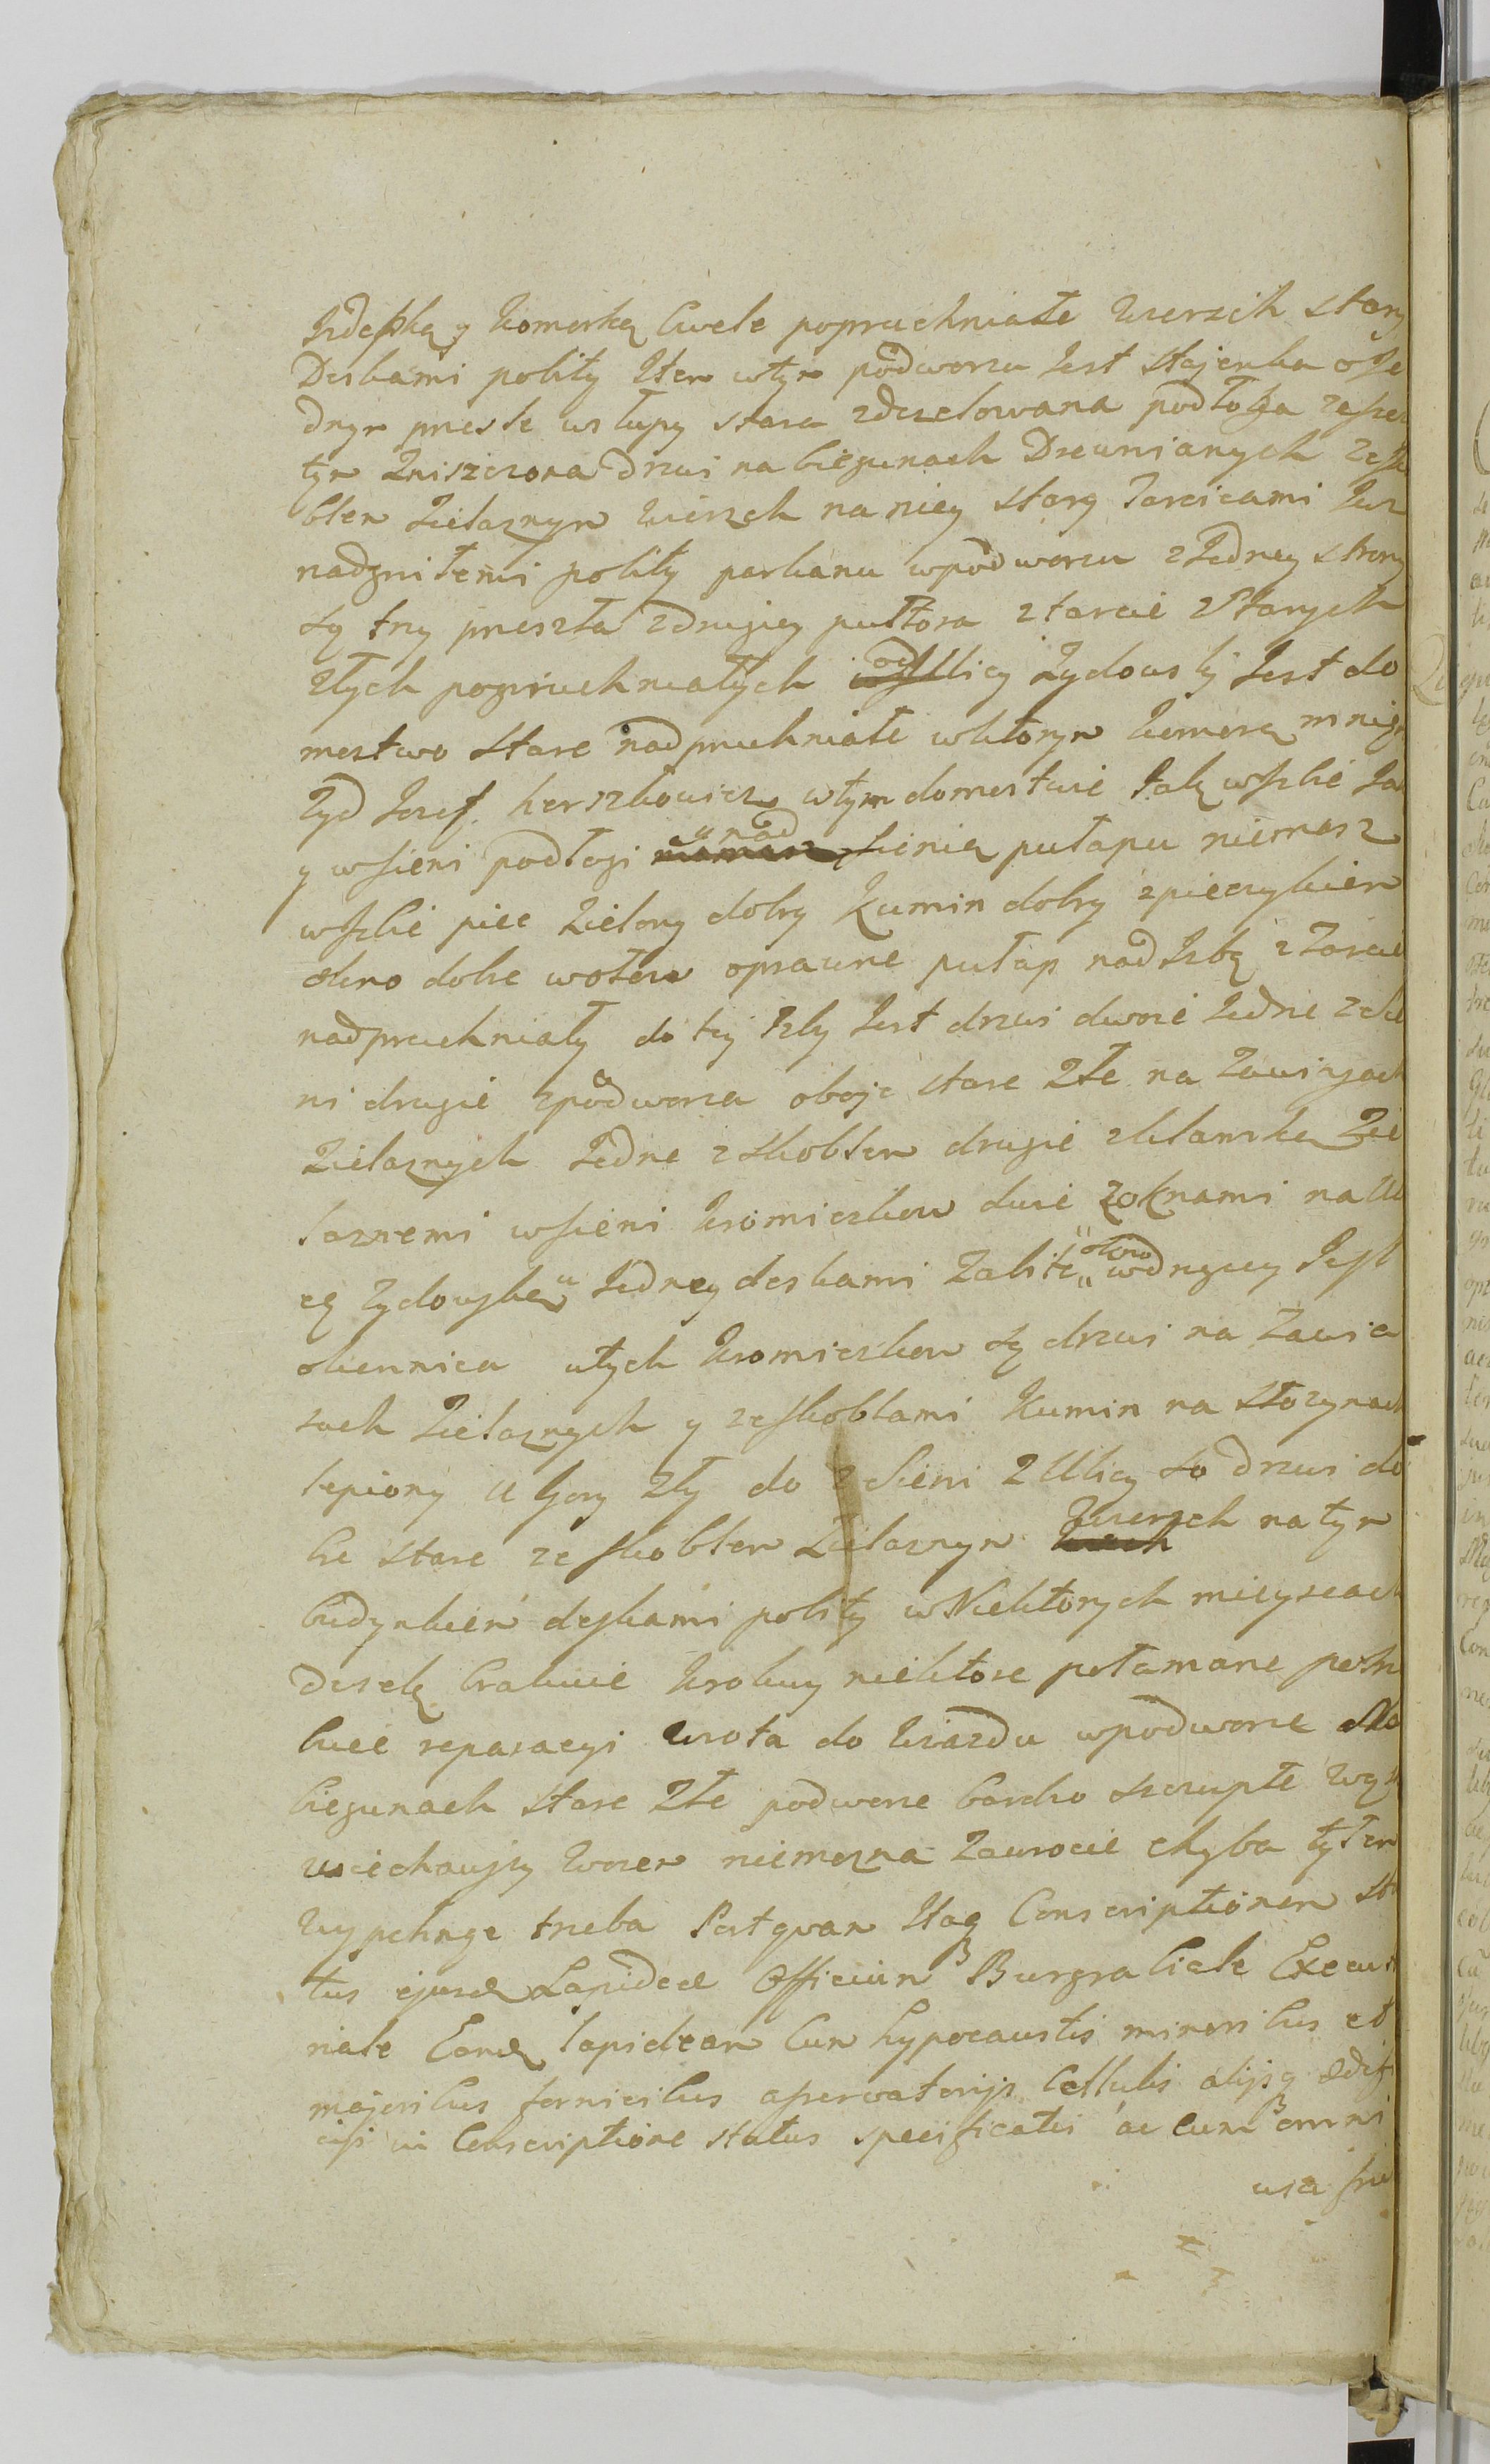 Izdepką y komorką cwele popruchniałe wierzch stary
Deskami pobity Item wtym podworzu Jest stajenka o Je
dnym presle wslupy stara zdezelowana podłoga zesz
tym zniszczona drzwi na biegunach Drewnianych zesko
blem żielaznym wierzch na niey stary Tarcicami Juz
nadgniłemi pobity parkanu wpodworzu zJedney strony
są trzy przeszła zdrugiey pułtora ztarcic Starych
złych popruchniałych od Ulicy Zydowsky Jest do
mostwo stare nadpruchniałe wktorym komorą mnięm
Zyd Josef Herszkowicz wtym domostwie Tak wJzbie Jak
y wsieni podłogi a nad sienią pułapu niemasz
wJzbie piec zielony dobry Kumin dobry zpiecykiem
okno dobre wołow oprawne pułap nad Izbą zTarcic
nadpruchniały do tey Izby Jest drzwi dwoie Jedne zsie
ni drugie zpodworza oboje stare złe na Zawiasach
żielaznych Jedne zskoblem drugie zklamką Zie
laznemi wsieni kromiczkow dwie zoknami na Uli
cę Zydowską w Jedney deskami Zabite okno wdrugiey Jest
okiennica utych kromiczkow są drzwi na Zawia
sach żielaznych y zeskoblami Kumin na słozynach
lepiony u Gory zły do zsieni zUlicy so drzwi do
bre stare zeskoblem żielaznym wierzch natym
budynkiem deskami pobity wNiektorych mieyscach
desek brakuie krokwy niektore połamane potrze
buie reparacyi wrota do wiazdu wpodworze Na
biegunach stare złe podworze bardzo szczupłe wzię
wiechawszy wozem niemozna zawrocic chyba tyłem
wypchnąc trzeba Postquam Itaq Conscriptionem sta
tus ejusd Lapideae Officium Burgrabiale Executi
niale Eand lapideam Cum hypocaustis minoribus et
majoribus fornicibus aservatorijs Cellulis alijsq ædifi
cijs in Conscriptione status specificatis ac cum omni
usu fru